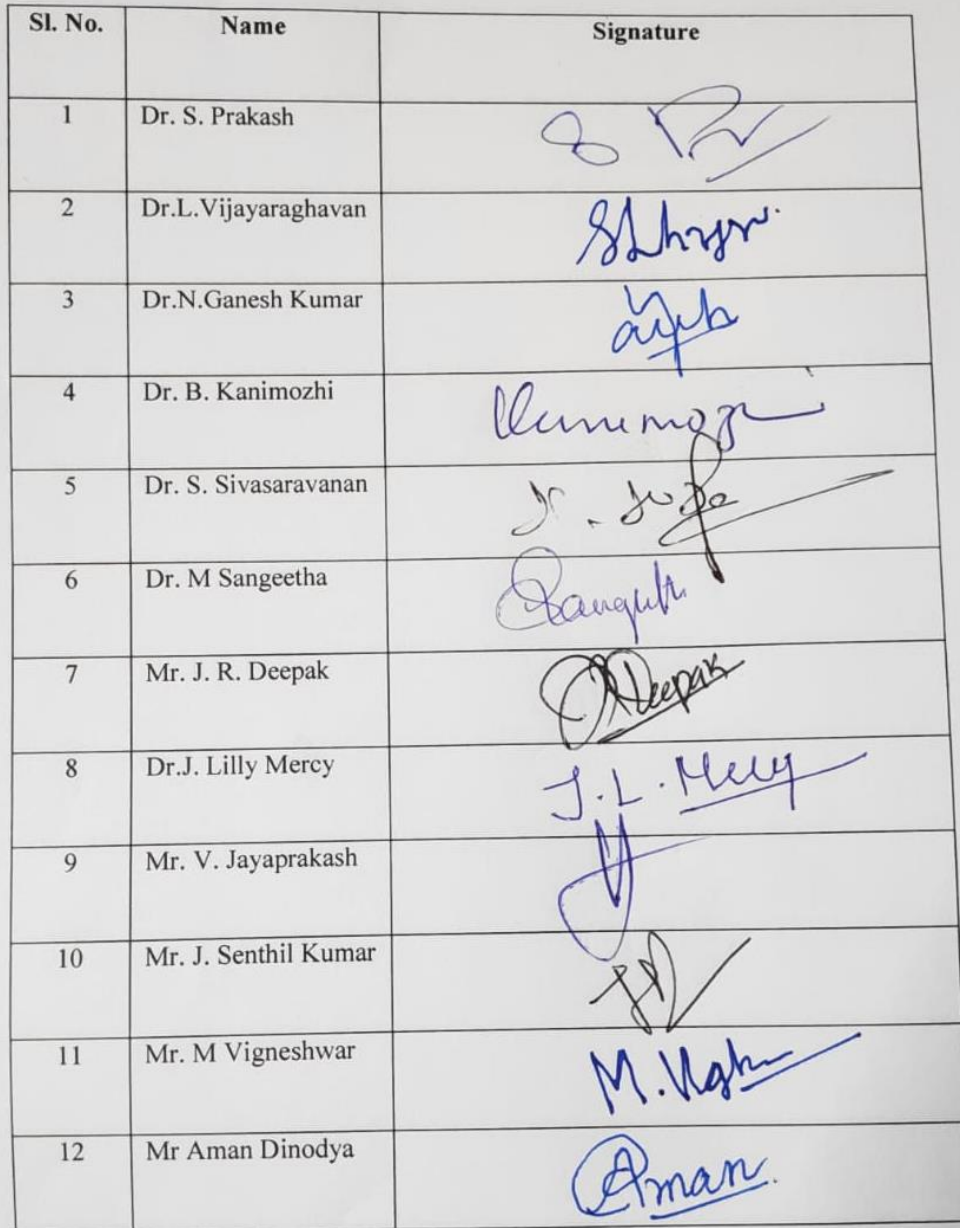 Sl. No. Name Signature
1 Dr. S. Prakash
2 Dr.L.Vijayaraghavan
3 Dr.N.Ganesh Kumar
4 Dr. B. Kanimozhi
5 Dr. S. Sivasaravanan
6 Dr. M Sangeetha
7 Mr. J. R. Deepak Deepak
8 Dr.J. Lilly Mercy J. L. Mercy
9 Mr. V. Jayaprakash
10 Mr. J. Senthil Kumar
11 Mr. M Vigneshwar M.
12 Mr Aman Dinodya Aman